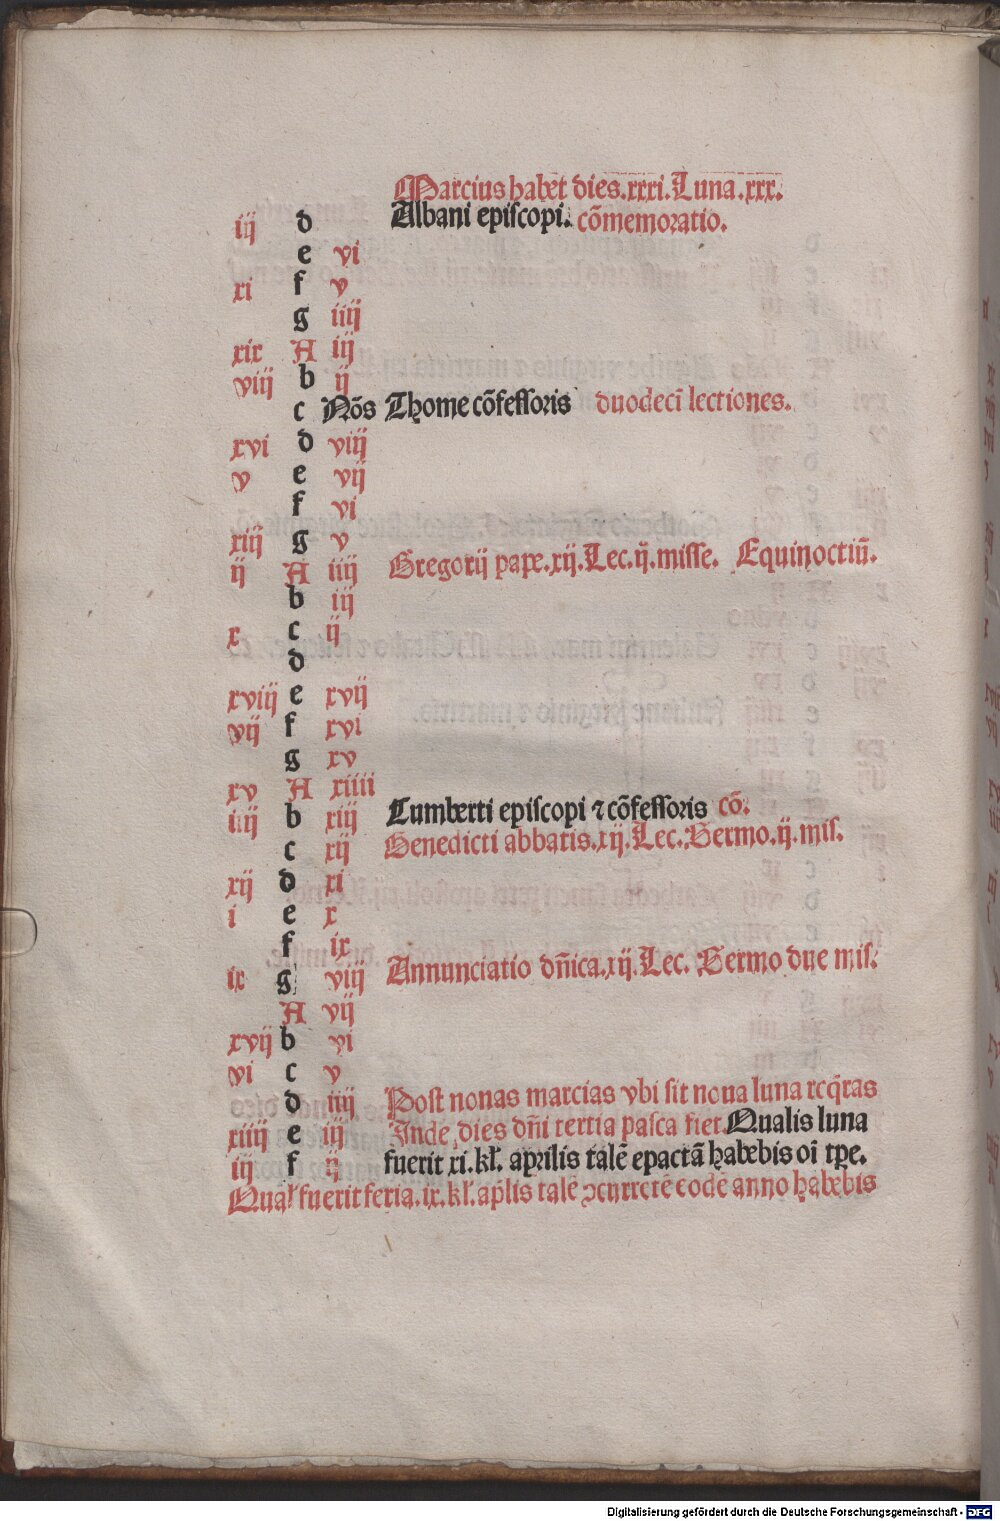 Marcius habet dies.xxxi.Luna.xxx.
iij d Albani episcopi. cōmemoratio.
e vi
xi f v
g iiij
xix A iij
viij b ij
c Nōs Thome cōfessoris duodecī lectiones.
xvi d viij
v e vij
f vi
xiij g v
ij A iiij Gregorij pape.xij.Lec.ij.misse. Equinoctiū.
b iij
x c ij
d
xviij e xvij
vij f xvi
g xv
xv A xiiii
iiij b xiij Cumberti episcopi ⁊ cōfessoris cō.
c xij Benedicti abbatis.xij.Lec.Sermo.ij.mis.
xij d xi
i e x
f ix
ix g viij Annunciatio dn̄ica.xij.Lec. Sermo due mis.
A vij
xvij b vi
vi c v
d iiij Post nonas marcias vbi sit noua luna rcq̄ras
xiiij e iij Inde dies dn̄i tertia pasca fiet. Qualis luna
iij f ij fuerit xi.kl̄. aprilis talē epactā habebis oī tp̄e.
Qual' fuerit feria.ix.kl̄.ap̄lis talē ꝯcurrētē eodē anno habebis
Digitalisierung gefördert durch die Deutsche Forschungsgemeinschaft - DFG